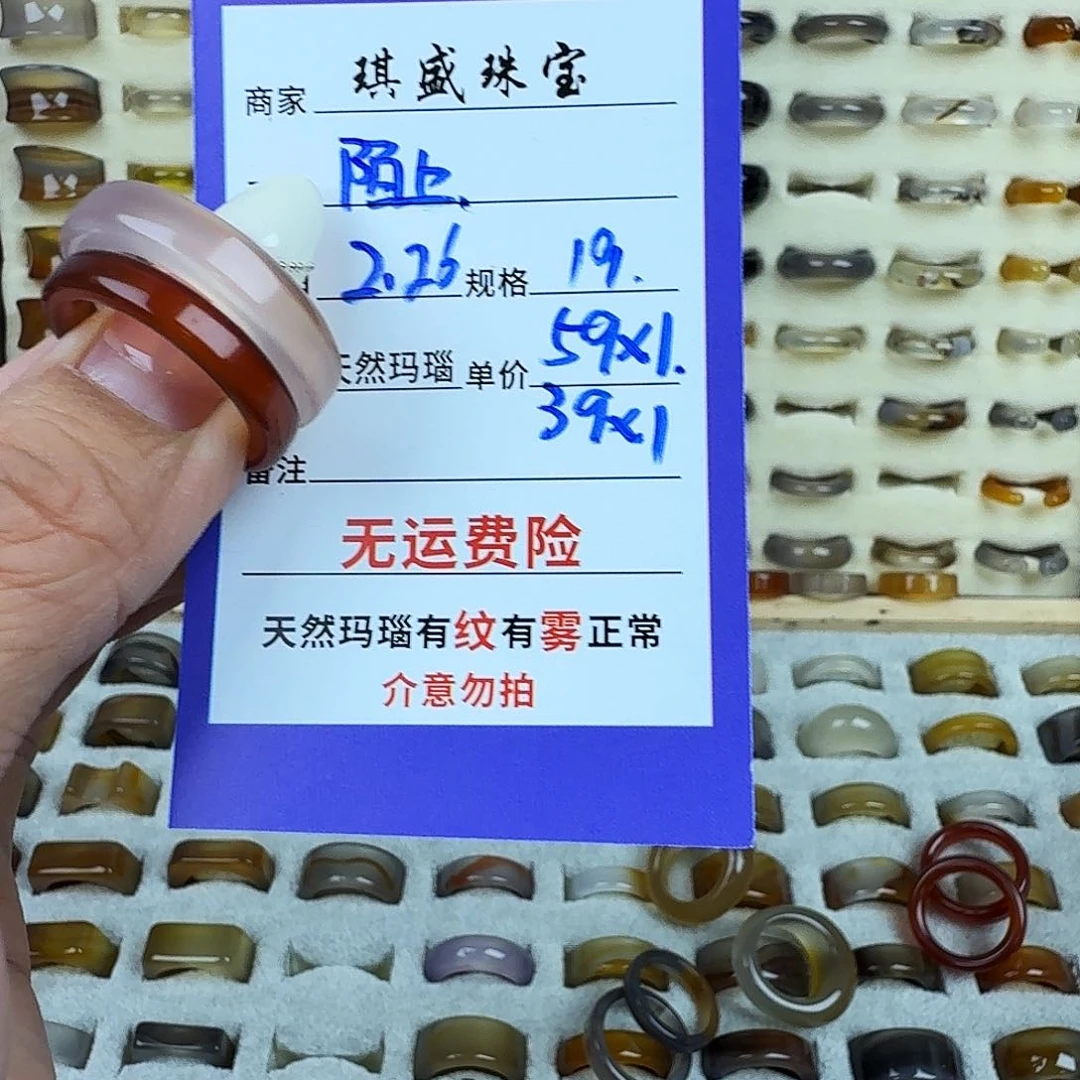 商家 琪盛珠宝
陌上.
2.26 规格 19.
天然玛瑙 单价 59x1.
39x1
备注
无运费险
天然玛瑙有纹有雾正常
介意勿拍